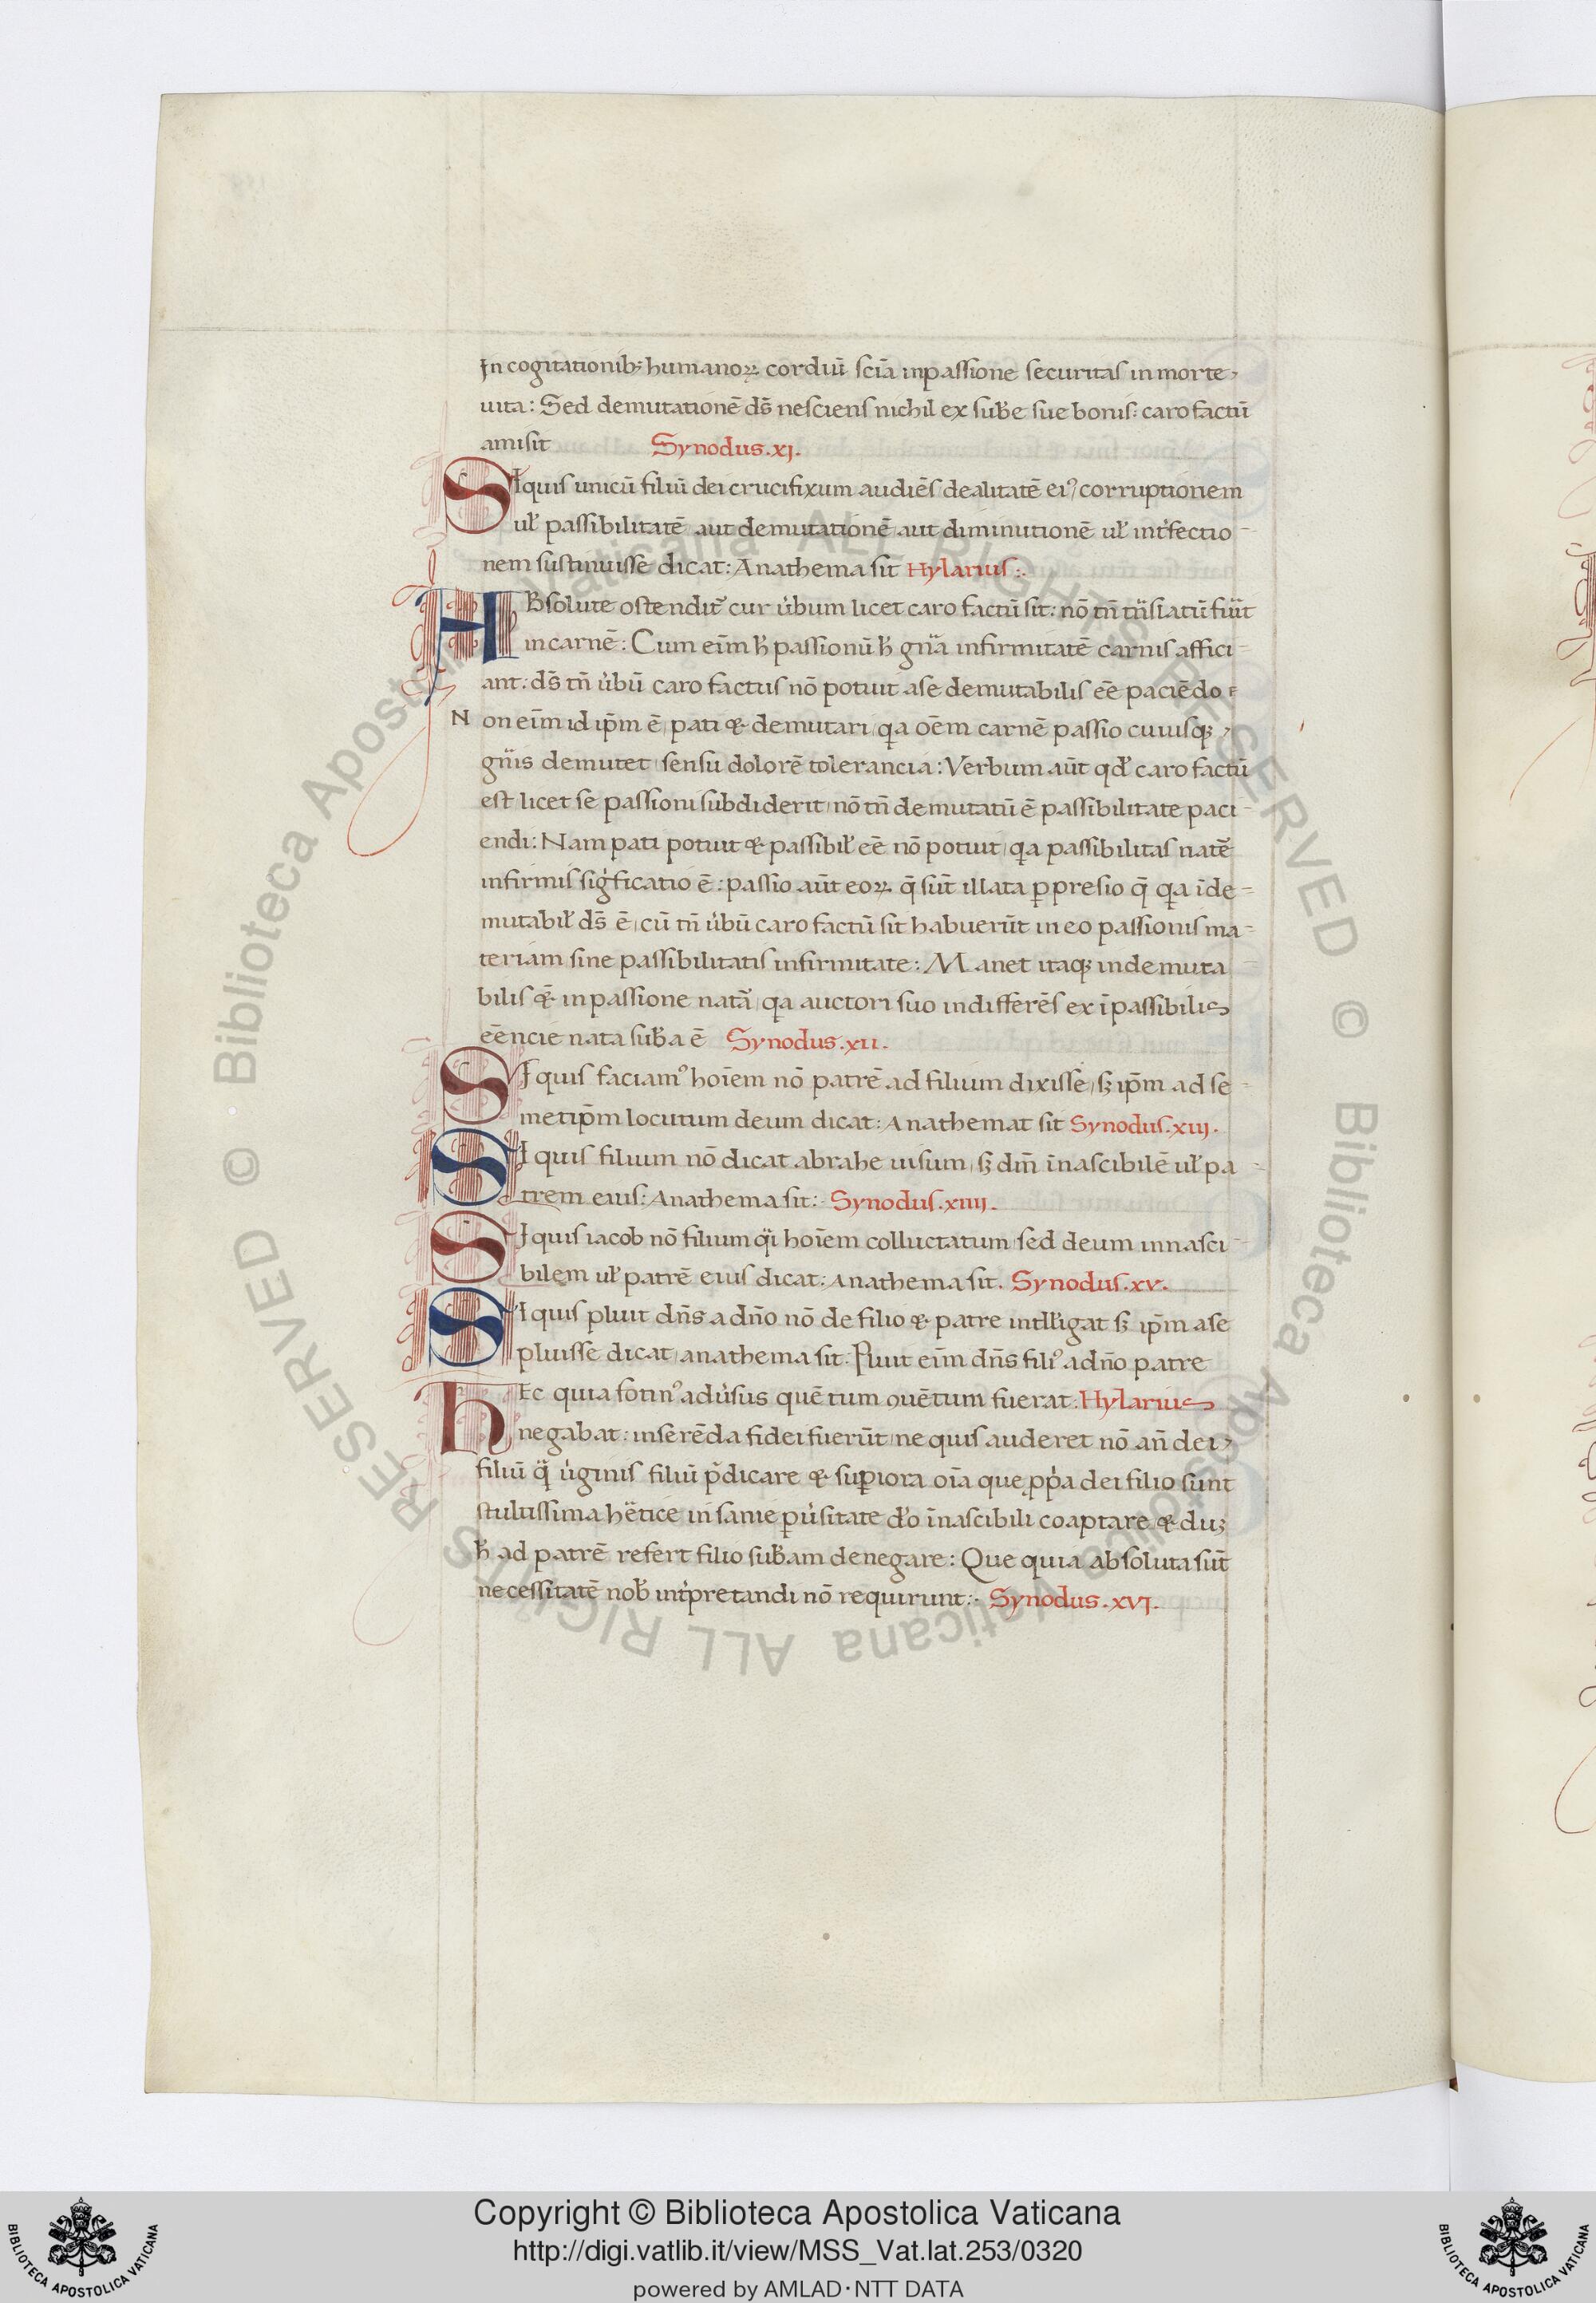 In cogitationib; humanoꝝ cordiū sciā inpassione securitas in morte
uita: Sed demutationē ds̄ nesciens nichil ex sub̄e sue bonis: caro factū
amisit Synodus.xj.
SIquis unicū filiū dei crucifixum audiēs dealitatē eiꝰ corruptionem
ul̓ passibilitatē aut demutationē aut diminutionē ul̓ int̓fectio-
nem sustinuisse dicat: Anathema sit Hylarius:.
ABsolute ostendit᷑ cur u̓bum licet caro factū sit: nō tn̄ tn̄siatū fuit
incarnē: Cum eim̄ h̓ passionū h̓ gn̄a infirmitatē carnis affici-
ant: ds̄ tn̄ u̓bū caro factus nō potuit ase demutabilis eē paciēdo
Non eim̄ id ip̄m ē pati & demutari qa oēm carnē passio cuiusqꝫ
gn̄is demutet sensu dolorē tolerancia: Verbum aūt qd̓ caro factū
est licet se passioni subdiderit nō tn̄ demutatū ē passibilitate paci-
endi: Nam pati potuit & passibil̓ eē nō potuit qa passibilitas natē
infirmis sigficatio ē: passio aūt eoꝝ q̄ sūt illata ꝑpresio q̄ qa īde-
mutabil̓ ds̄ ē cū tn̄ u̓bū caro factū sit habuerūt in eo passionis ma-
teriam sine passibilitatis infirmitate: Manet itaqꝫ indemuta
bilis & inpassione natā qa auctori suo indifferēs ex īpassibilis
eēncie nata sub̄a ē Synodus.xii.
SI quis faciamꝰ hoīem nō patrē ad filium dixisse sꝫ ip̄m ad se-
metip̄m locutum deum dicat: Anathemat sit Synodus.xiij.
SI quis filium nō dicat abrahe uisum sꝫ dm̄ īnascibilē ul̓ pa-
trem eius: Anathema sit: Synodus.xiiij.
SI quis iacob nō filium q̄i hoīem colluctatum sed deum innasci-
bilem ul̓ patrē eius dicat: Anathema sit. Synodus.xv.
SI quis pluit dn̄s a dn̄o nō de filio & patre intll̓igat sꝫ ip̄m ase
pluisse dicat anathema sit: Pluit eim̄ dn̄s filiꝰ adn̄o patre
hEc quia fotinꝰ adu̓sus quē tum ꝯuētum fuerat: Hylarius
negabat: inserēda fidei fuerūt ne quis auderet nō an̄ dei
filiū q̄ u̓ginis filiū p̄dicare & suꝑiora oīa que ꝓp̓a dei filio sunt
stultissima hētice insanie ꝑu̓sitate do̓ īnascibili coaptare & duꝫ
h̓ ad patrē refert filio sub̄am denegare: Que quia absoluta sūt
necessitatē nob̓ int̓pretandi nō requirunt:. Synodus.xvj.
Copyright © Biblioteca Apostolica Vaticana
http://digi.vatlib.it/view/MSS_Vat.lat.253/0320
powered by AMLAD·NTT DATA
BIBLIOTECA APOSTOLICA VATICANA
BIBLIOTECA APOSTOLICA VATICANA
© Biblioteca Apostolica Vaticana ALL RIGHTS RESERVED
© Biblioteca Apostolica Vaticana ALL RIGHTS RESERVED